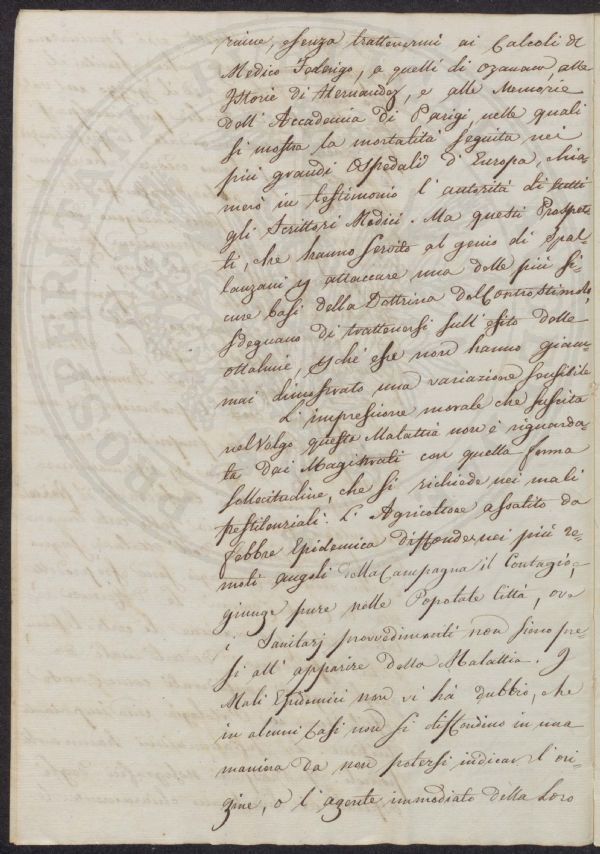 rime, senza trattenermi ai Calcoli di
Medico Federigo, a quelli di Ozanam, alle
Istorie di Hernandez, e alle Memorie
dell' Accademia di Parigi, nelle quali
si mostra la mortalità seguita nei
più grandi Ospedali d' Europa, chia-
merò in testimonio l' autorità di tutti
gli Scrittori Medici. Ma questi Prospet-
ti, che hanno servito al genio di Spal-
lanzani attaccare una delle più si-
cure basi della Dottrina del Controstimolo,
sdegnano di trattenersi sull' esito delle
ottalmie, che esse non hanno giam-
mai dimostrato una variazione sensibile
L' impressione morale che suscita
nel Volgo queste Malattia non è riguarda-
ta dai Magistrati con quella ferma
sollecitudine, che si richiede nei mali
pestilenziali. L' Agricoltore assalito da
febbre Epidemica diffonde nei più re-
moti angoli della Campagna il Contagio,
giunge pure nelle Popolate Città, ove
i Sanitarj provvedimenti non sieno pre-
si all' apparire della Malattia. I
Mali Epidemici non vi ha dubbio, che
in alcuni Casi non si diffondino in una
maniera da non potersi indicar l' ori-
gine, o l' agente immediato della loro